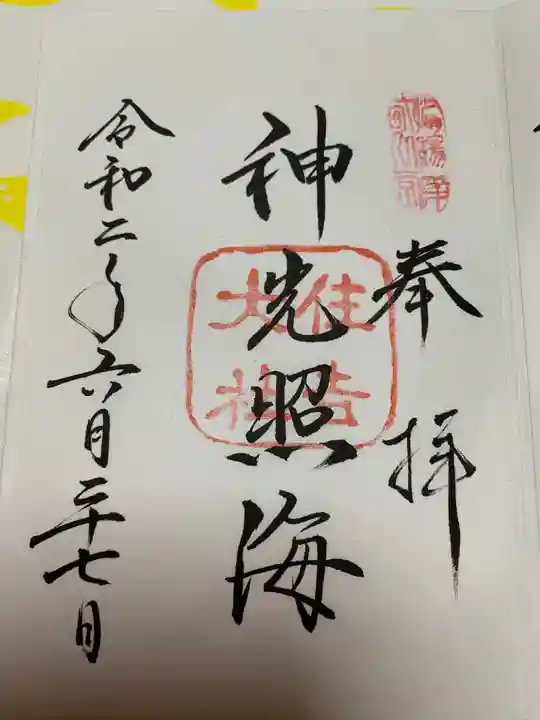 奉拝
神光照海
住吉
大社
令和二年六月二十七日